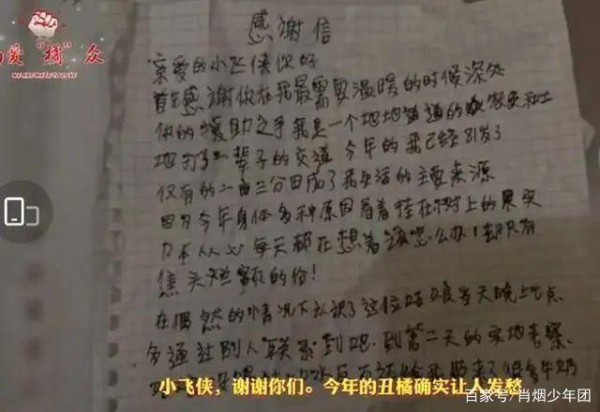 爱“橘”众
感谢信
亲爱的小飞侠你好
首先感谢你在我最需要温暖的时候深处
你的援助之手我是一个地地道道的农家
地打了一辈子的交道 今年的我已经
仅有的二亩三分田成了我生活的主要来源
因为今年身体多种原因看着挂在树上的果实
力不从心每天都在想着该怎么办！却只有
焦头烂额的份！
在偶然的情况下认识了这位 当天晚上七点
多通过别人联系到吧 到第二天的实地考察
小飞侠，谢谢你们。今年的丑橘确实让人发愁
百家号/肖烟少年团